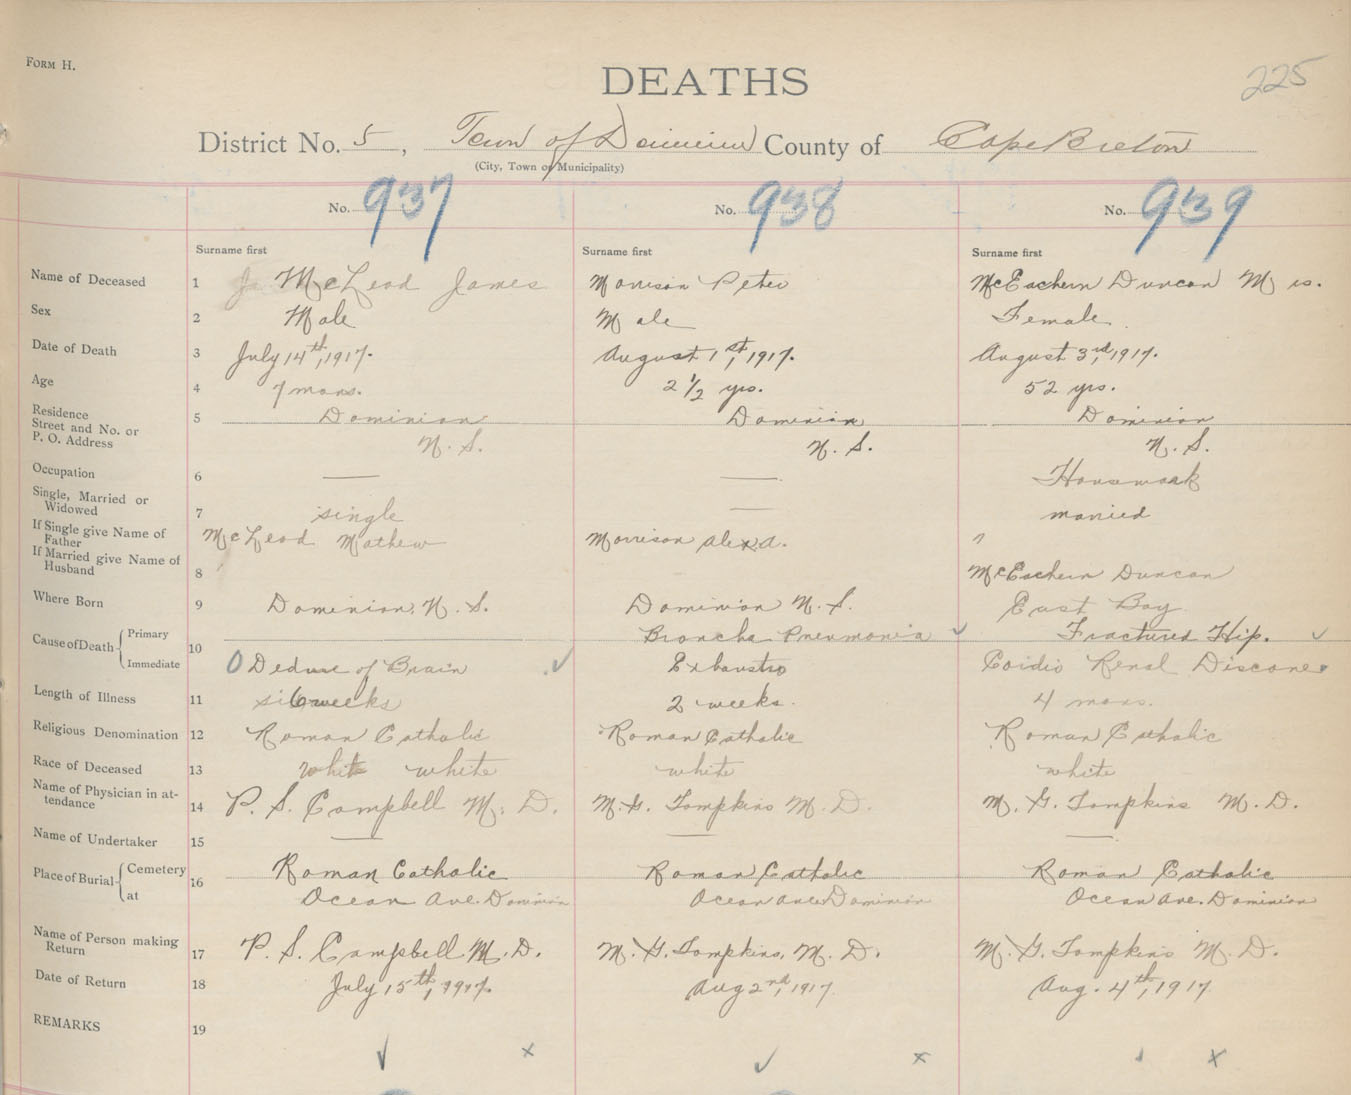 FORM H.
225
DEATHS
District No. 5, Town of Dominion County of Cape Breton
(City, Town or Municipality)
No. 937 No. 938 No. 939
Surname first Surname first Surname first
Name of Deceased 1 McLeod James Morrison Peter McEachern Duncan Mrs.
Sex 2 Male Male Female
Date of Death 3 July 14th, 1917. August 1st, 1917. August 3rd, 1917.
Age 4 7 mons. 2 1/2 yrs. 52 yrs.
Residence
Street and No. or
P. O. Address 5 Dominion Dominion Dominion
N. S. N. S. N. S.
Occupation 6 — — Housework
Single, Married or
Widowed 7 single — married
If Single give Name of
Father McLeod Mathew Morrison Alex. A.
If Married give Name of
Husband 8 McEachern Duncan
Where Born 9 Dominion, N. S. Dominion N. S. East Bay
Cause of Death 10 Primary Broncho Pneumonia Fractured Hip.
Immediate of Brain Exhaustio Renal
Length of Illness 11 6 weeks 2 weeks. 4 mons.
Religious Denomination 12 Roman Catholic Roman Catholic Roman Catholic
Race of Deceased 13 white white white white
Name of Physician in at-
tendance 14 P. S. Campbell M. D. M. G. Tompkins M. D. M. G. Tompkins M. D.
Name of Undertaker 15 — — —
Place of Burial 16 Cemetery Roman Catholic Roman Catholic Roman Catholic
at Ocean Ave. Dominion Ocean Ave. Dominion Ocean Ave. Dominion
Name of Person making
Return 17 P. S. Campbell M. D. M. G. Tompkins, M. D. M. G. Tompkins M. D.
Date of Return 18 July 15th, 1917. Aug 2nd, 1917 Aug. 4th, 1917
REMARKS 19